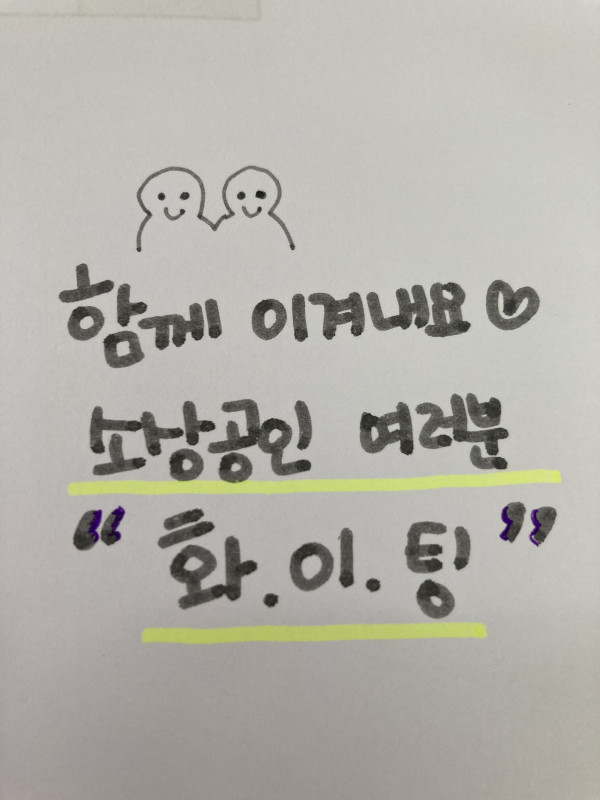 함께 이겨내요♡
소상공인 여러분
“화.이.팅”